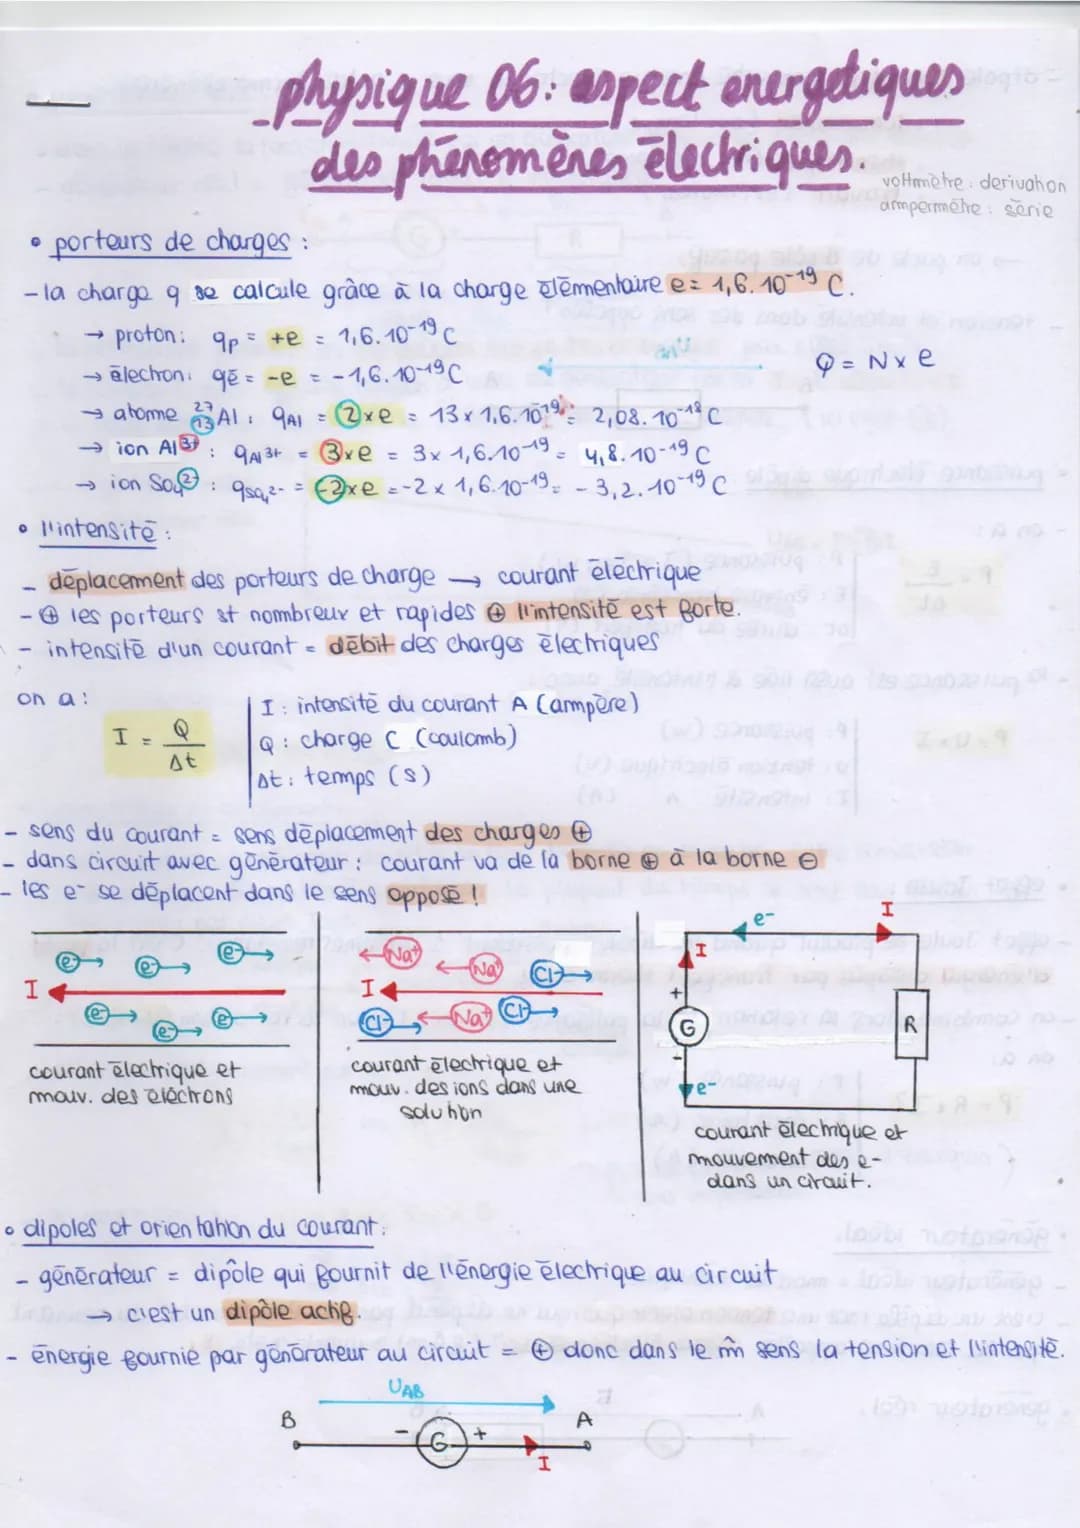 physique 06: aspect energetiques
des phénomènes électriques.
voltmètre: derivation
ampermètre: série
• porteurs de charges :
- la charge q se calcule grâce à la charge élémentaire e = 1,6.10⁻¹⁹ C.
→ proton: qp = +e = 1,6.10⁻¹⁹ C
→ électron: qē = -e = -1,6.10⁻¹⁹ C
Q = N x e
→ atome ²⁷₁₃Al : qAl = Z x e = 13 x 1,6.10⁻¹⁹ = 2,08.10⁻¹⁸ C
→ ion Al³⁺ : qAl³⁺ = 3 x e = 3 x 1,6.10⁻¹⁹ = 4,8.10⁻¹⁹ C
→ ion SO₄²⁻ : qSO₄²⁻ = -2 x e = -2 x 1,6.10⁻¹⁹ = -3,2.10⁻¹⁹ C
• l'intensité :
- déplacement des porteurs de charge → courant électrique
- ⊕ les porteurs st nombreux et rapides ⊕ l'intensité est forte.
- intensité d'un courant = débit des charges électriques
on a :
I = Q / Δt
I : intensité du courant A (ampère)
Q : charge C (coulomb)
Δt : temps (s)
- sens du courant = sens déplacement des charges ⊕
- dans circuit avec générateur : courant va de la borne ⊕ à la borne ⊖
- les e⁻ se déplacent dans le sens opposé !
e- e- e-
I
e- e- e-
courant électrique et
mouv. des électrons
Na+ Na+ Cl-
I
Cl- Na+ Cl-
courant électrique et
mouv. des ions dans une
solution
e- I
I
+
G
-
R
e-
courant électrique et
mouvement des e-
dans un circuit.
• dipoles et orientation du courant :
- générateur = dipôle qui fournit de l'énergie électrique au circuit
→ c'est un dipôle actif.
- énergie fournie par générateur au circuit = ⊕ donc dans le m̂ sens la tension et l'intensité.
UAB
B - G + A
I